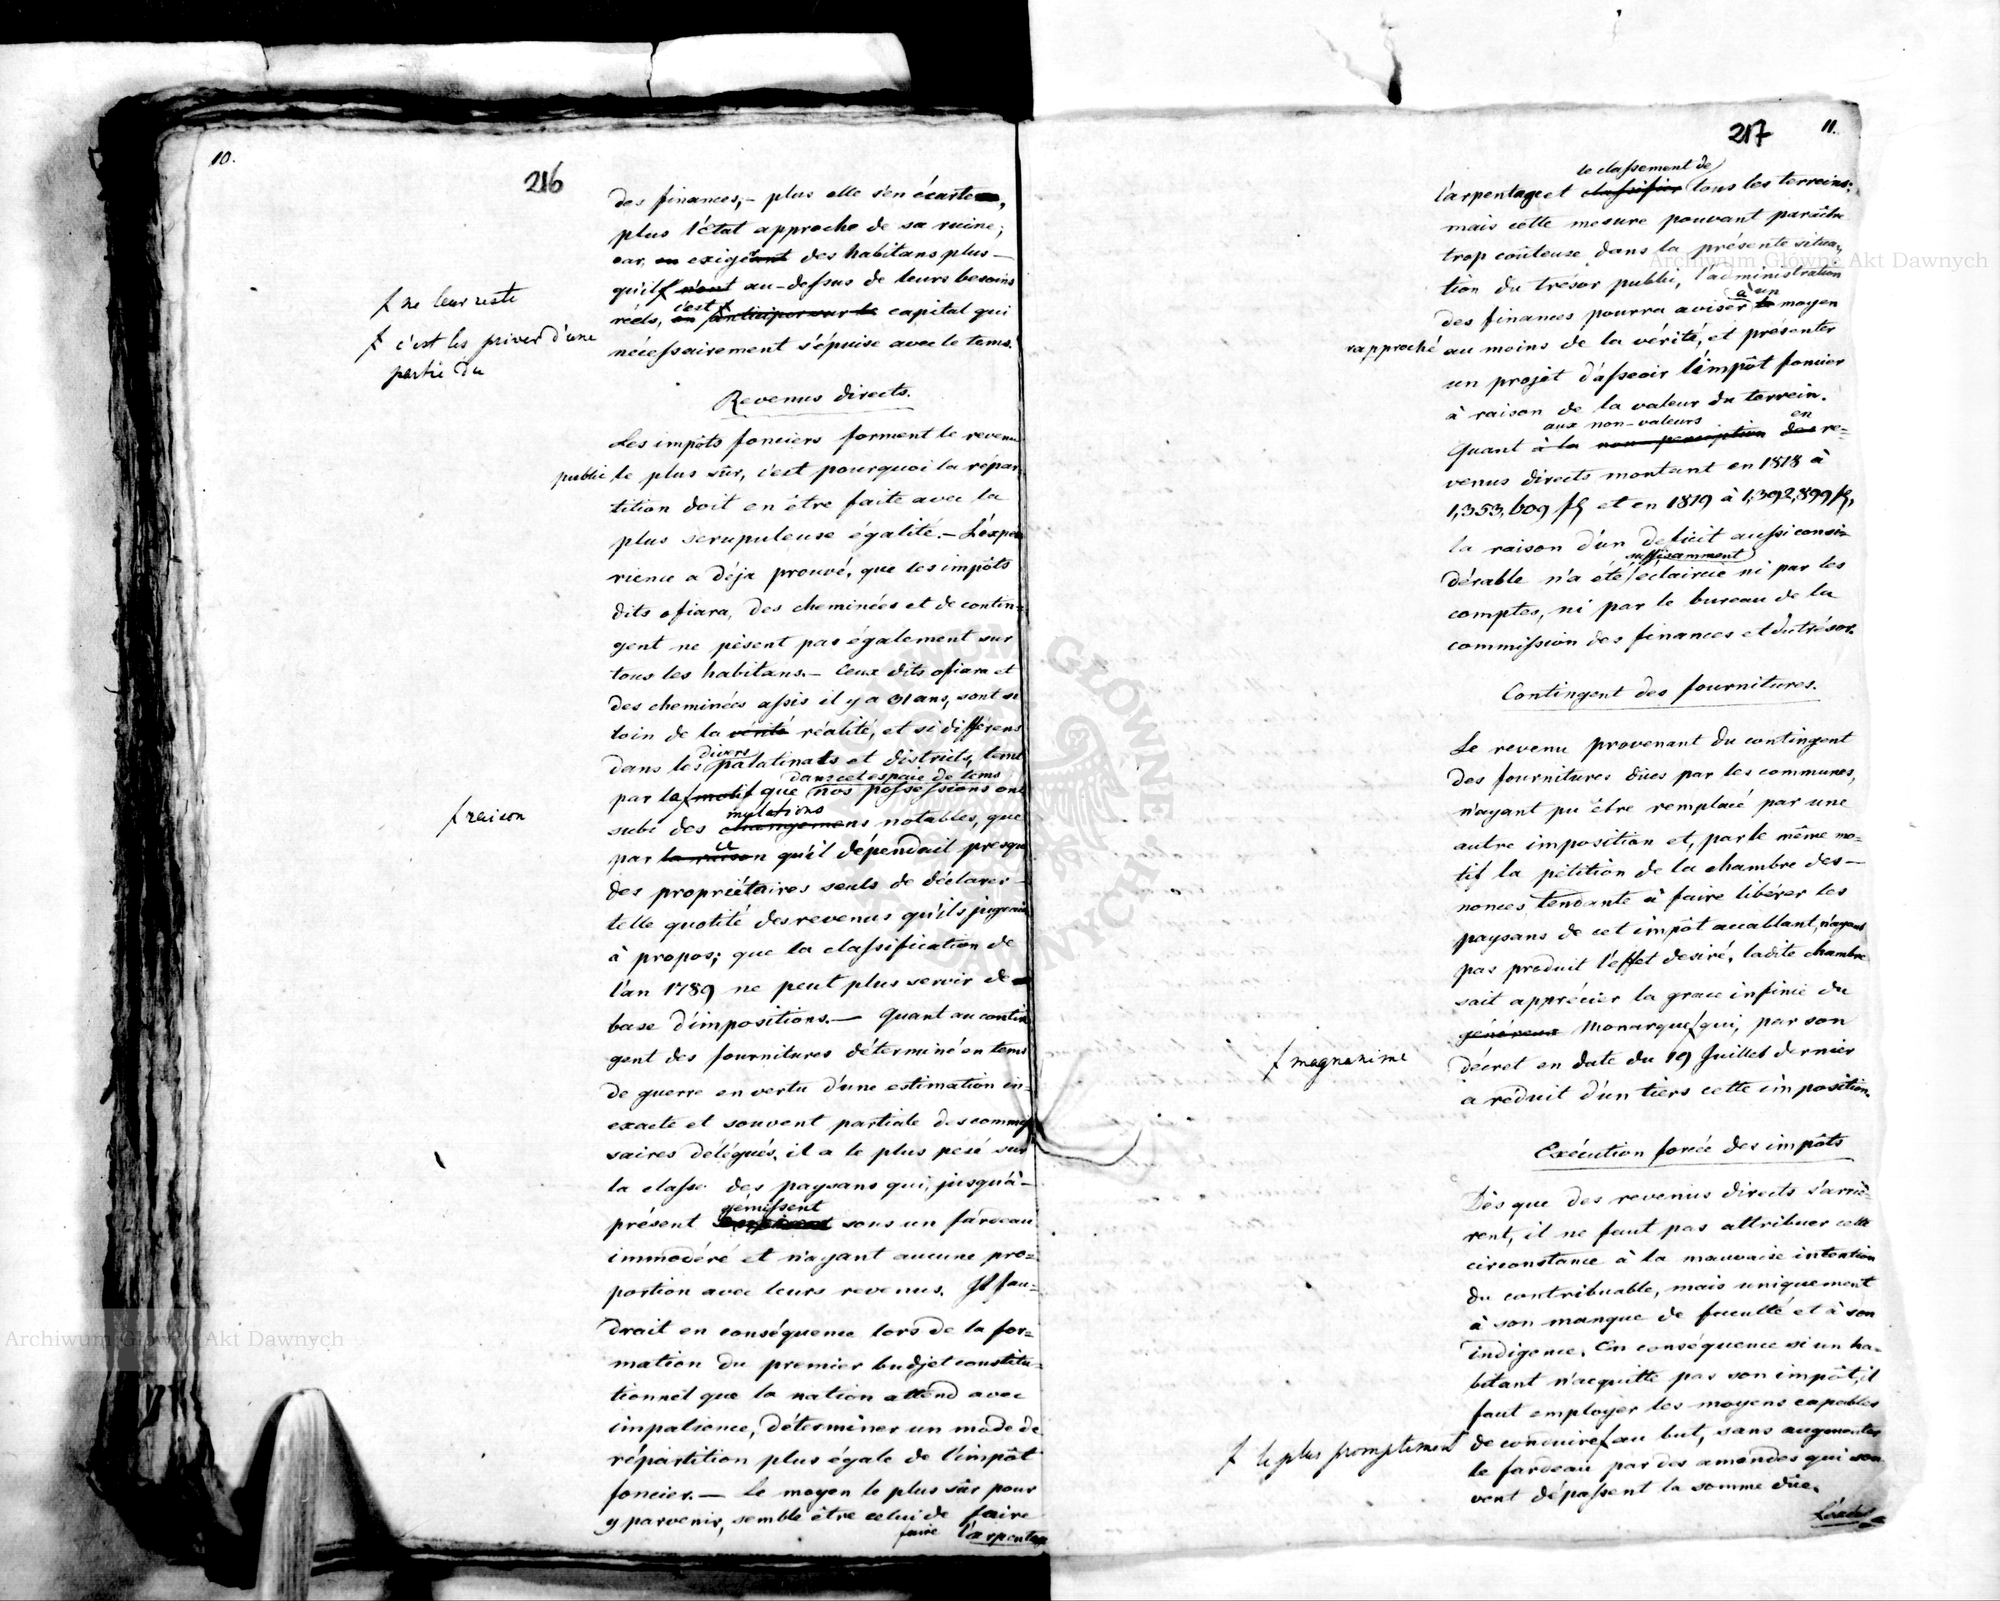 10.
216
des finances, – plus elle s'en écarte,
plus l'état approche de sa ruine;
car, en exigeant des habitans plus –
qu'il n'ont au-dessus de leurs besoins
c'est
réels, en anticiper sur le capital qui
nécessairement s'épuise avec le tems.
ne leur reste
c'est les priver d'une
partie du
Revenus directs.
Les impôts fonciers forment le revenu
public le plus sûr, c'est pourquoi la répar-
tition doit en être faite avec la
plus scrupuleuse égalité. – L'expé
rience a déja prouvé, que les impôts
dits ofiara, des cheminées et de contin-
gent ne pèsent pas également sur
tous les habitans. – Ceux dits ofiara et
des cheminées assis il y a 31 ans, sont si
loin de la vérité réalité, et si différens
divers
dans les palatinats et districts, tant
dans cet espace de tems
par la motif que nos possessions ont
raison
mutations
subi des changemens notables, que
ce
par la raison qu'il dépendait presque
des propriétaires seuls de déclarer –
telle quotité des revenus qu'ils jugeaient
à propos; que la classification de
l'an 1789 ne peut plus servir de
base d'impositions. – Quant au contin
gent des fournitures déterminé en tems
de guerre en vertu d'une estimation in-
exacte et souvent partiale des commis
saires délégués, il a le plus pesé sur
la classe des paysans qui, jusqu'à –
gémissent
présent sous un fardeau
immodéré et n'ayant aucune pro-
portion avec leurs revenus. Il fau-
drait en conséquence lors de la for-
mation du premier budjet constitu-
tionnel que la nation attend avec
impatience, déterminer un mode de
répartition plus égale de l'impôt
foncier. – Le moyen le plus sûr pour
y parvenir, semble être celui de faire
faire l'arpentage
217
11.
le classement de
l'arpentage et classifier tous les terreins;
mais cette mesure pouvant paraître
trop coûteuse dans la présente situa-
tion du trésor public, l'administration
à un
des finances pourra aviser le moyen
rapproché au moins de la vérité, et présenter
un projet d'asseoir l'impôt foncier
à raison de la valeur du terrein.
aux non-valeurs en
Quant à la non-perception des re-
venus directs montant en 1818 à
1,353,609 fl et en 1819 à 1,392,899 fl,
la raison d'un deficit aussi consi-
suffisamment
dérable n'a été éclaircie ni par les
comptes, ni par le bureau de la
commission des finances et du trésor.
Contingent des fournitures.
Le revenu provenant du contingent
des fournitures dües par les communes,
n'ayant pu être remplacé par une
autre imposition et, par le même mo-
tif la pétition de la chambre des –
nonces tendante à faire libérer les
paysans de cet impôt accablant, n'ayant
pas produit l'effet desiré, ladite chambre
sait apprécier la grace infinie du
généreux Monarque qui, par son
magnanime
décret en date du 19 Juillet dernier
a réduit d'un tiers cette imposition.
Exécution forcée des impôts
Dès que des revenus directs s'arriè-
rent, il ne faut pas attribuer cette
circonstance à la mauvaise intention
du contribuable, mais uniquement
à son manque de faculté et à son
indigence. En conséquence si un ha-
bitant n'acquitte pas son impôt, il
faut employer les moyens capables
de conduire au but, sans augmenter
le plus promptement
le fardeau par des amendes qui sou
vent dépassent la somme düe.
Archiwum Główne Akt Dawnych
Archiwum Główne Akt Dawnych